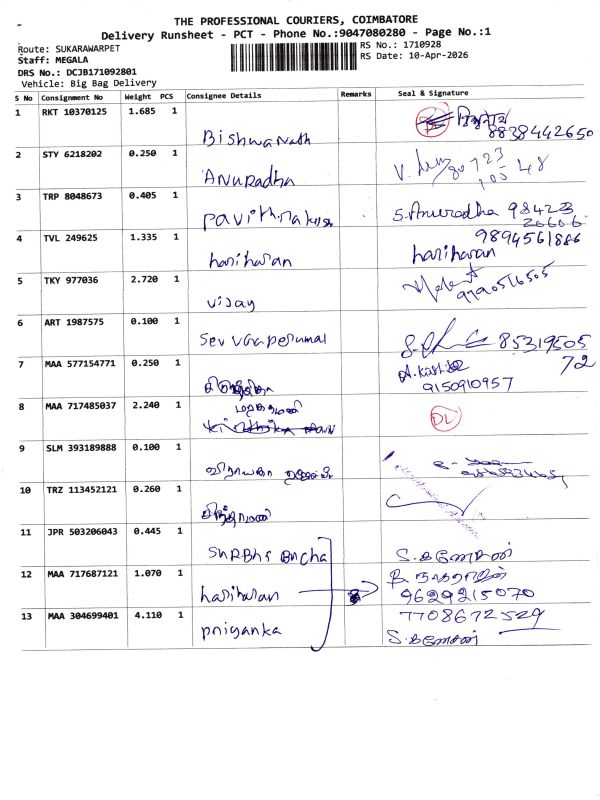 THE PROFESSIONAL COURIERS, COIMBATORE
Delivery Runsheet - PCT - Phone No.:9047080280 - Page No.:1
Route: SUKARAWARPET
RS No.: 1710928
Staff: MEGALA
RS Date: 10-Apr-2026
DRS No.: DCJB171092801
Vehicle: Big Bag Delivery
S No Consignment No Weight PCS Consignee Details Remarks Seal & Signature
1 RKT 10370125 1.685 1
Bishwanath 8838442650
2 STY 6218202 0.250 1
Anuradha
3 TRP 8048673 0.405 1
S.Anuradha 98423
20606
4 TVL 249625 1.335 1
9894561886
hariharan hariharan
5 TKY 977036 2.720 1
vijay 9790516505
6 ART 1987575 0.100 1
85319505
72
7 MAA 577154771 0.250 1
9150910957
8 MAA 717485037 2.240 1
DL
9 SLM 393189888 0.100 1
10 TRZ 113452121 0.260 1
11 JPR 503206043 0.445 1
S.கணேசன்
12 MAA 717687121 1.070 1
hariharan 9629215070
13 MAA 304699401 4.110 1
7708672529
priyanka S.கணேசன்